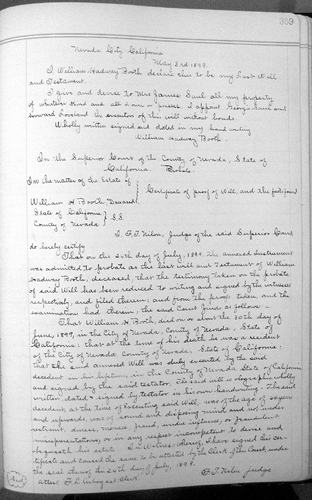 359
Nevada City California
May 3rd 1899.
I William Hadway Booth declare this to be my Last Will
and Testament.
I give and devise to Mrs James Snell all my property
of whatever kind and all I own or possess. I appoint George Snell and
Lovisand the executors of this will without bonds.
Wholly written signed and dated in my hand writing
William Hadway Booth.
In the Superior Court of the County of Nevada, State of
California. Probate.
In the matter of the Estate of
Certificate of proof of Will, and the facts found
William H Booth Deceased.
State of California } S.S.
County of Nevada
I, F. T. Nilon, Judge of the said Superior Court
do hereby certify
That on the 24th day of July, 1899. The annexed instrument
was admitted to probate as the last will and testament of William
Hadway Booth, deceased that the testimony taken on the probate
of said Will has been reduced to writing and signed by the witnesses
respectively, and filed therein; and from the proofs taken and the
examination had therein, the said Court finds as follows -
That William H. Booth, died on or about the 30th day of
June, 1899, in the City of Nevada, County of Nevada, State of
California; that at the time of his death he was a resident
of the City of Nevada County of Nevada, State of California;
that the said annexed Will was duly executed by the said
decedent in his lifetime, in the County of Nevada State of California
and signed by the said testator. The said will is olographic wholly
written, dated & signed by testator in his own handwriting. The said
decedent, at the time of executing said Will, was of the age of
and upwards, was of sound and disposing mind, and not under
restraint, duress, menace, fraud, undue influence, or fraudulent
misrepresentations, or in any respect incompetent to devise and
bequeath his estate. In Witness whereof, I have signed this cer-
tificate and caused the same to be attested by the Clerk of the Court under
the seal thereof 24th day of July, 1899.
F. T. Nilon Judge
attest Clerk.